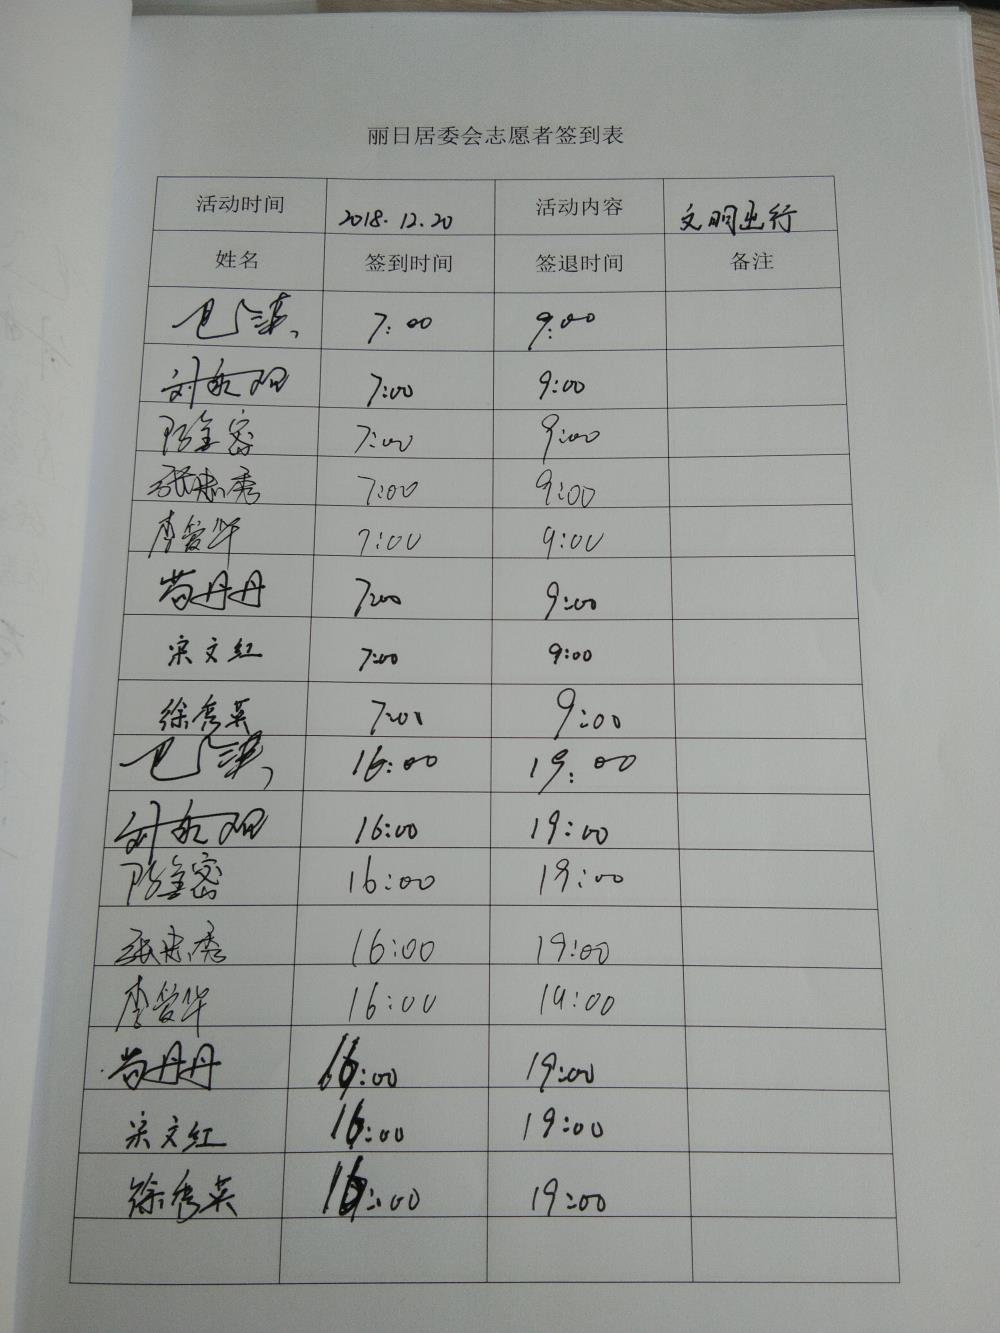 丽日居委会志愿者签到表
活动时间 2018.12.20 活动内容 文明出行
姓名 签到时间 签退时间 备注
7:00 9:00
7:00 9:00
7:00 9:00
张忠秀 7:00 9:00
李爱华 7:00 9:00
苗丹丹 7:00 9:00
宋文红 7:00 9:00
徐秀英 7:00 9:00
16:00 19:00
16:00 19:00
16:00 19:00
张忠秀 16:00 19:00
李爱华 16:00 19:00
苗丹丹 16:00 19:00
宋文红 16:00 19:00
徐秀英 16:00 19:00